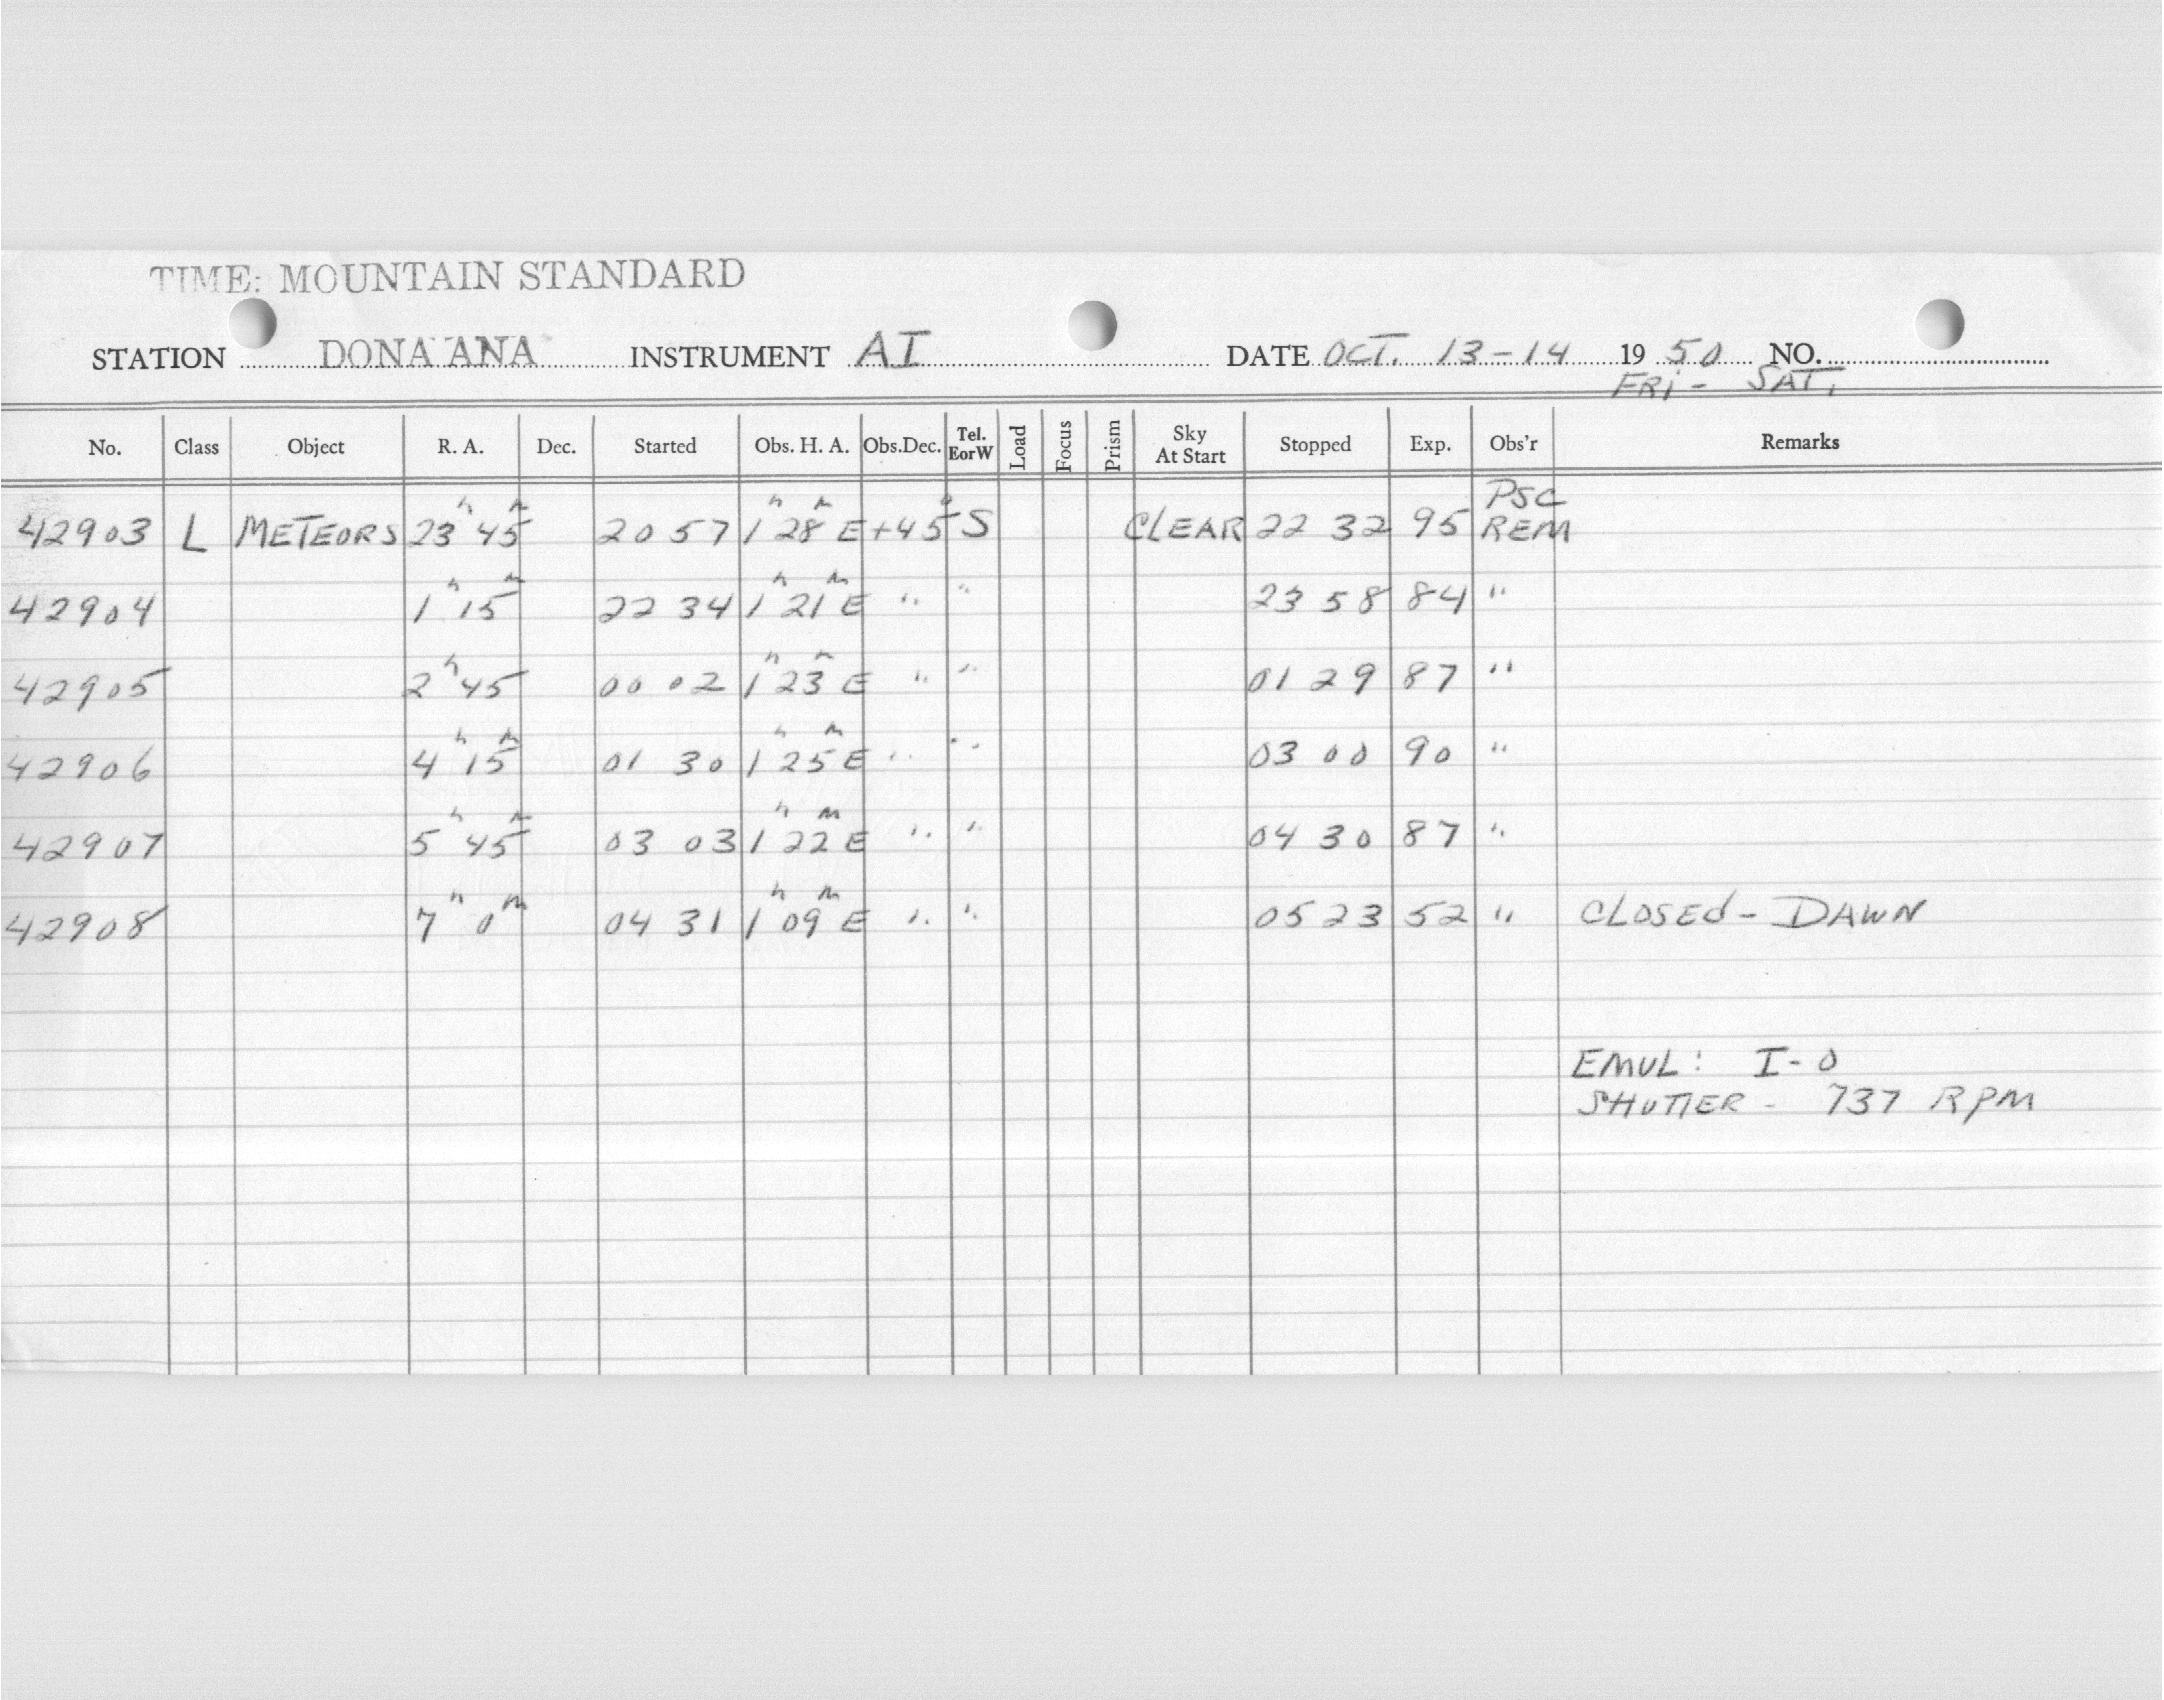 TIME: MOUNTAIN STANDARD
STATION DONA ANA INSTRUMENT AI DATE OCT. 13-14 1950 NO.
FRI - SAT.
No. Class Object R. A. Dec. Started Obs. H. A. Obs.Dec. Tel. EorW Load Focus Prism Sky At Start Stopped Exp. Obs'r Remarks
PSC
42903 L METEORS 23h 45m 20 57 1h 28m E +45° S CLEAR 22 32 95 REM
42904 1h 15m 22 34 1h 21m E " " 23 58 84 "
42905 2h 45 00 02 1h 23m E " " 01 29 87 "
42906 4h 15m 01 30 1h 25m E " " 03 00 90 "
42907 5h 45m 03 03 1h 22m E " " 04 30 87 "
42908 7h 0m 04 31 1h 09m E " " 05 23 52 " CLOSEd - DAWN
EMUL: I-0
SHUTTER - 737 RPM